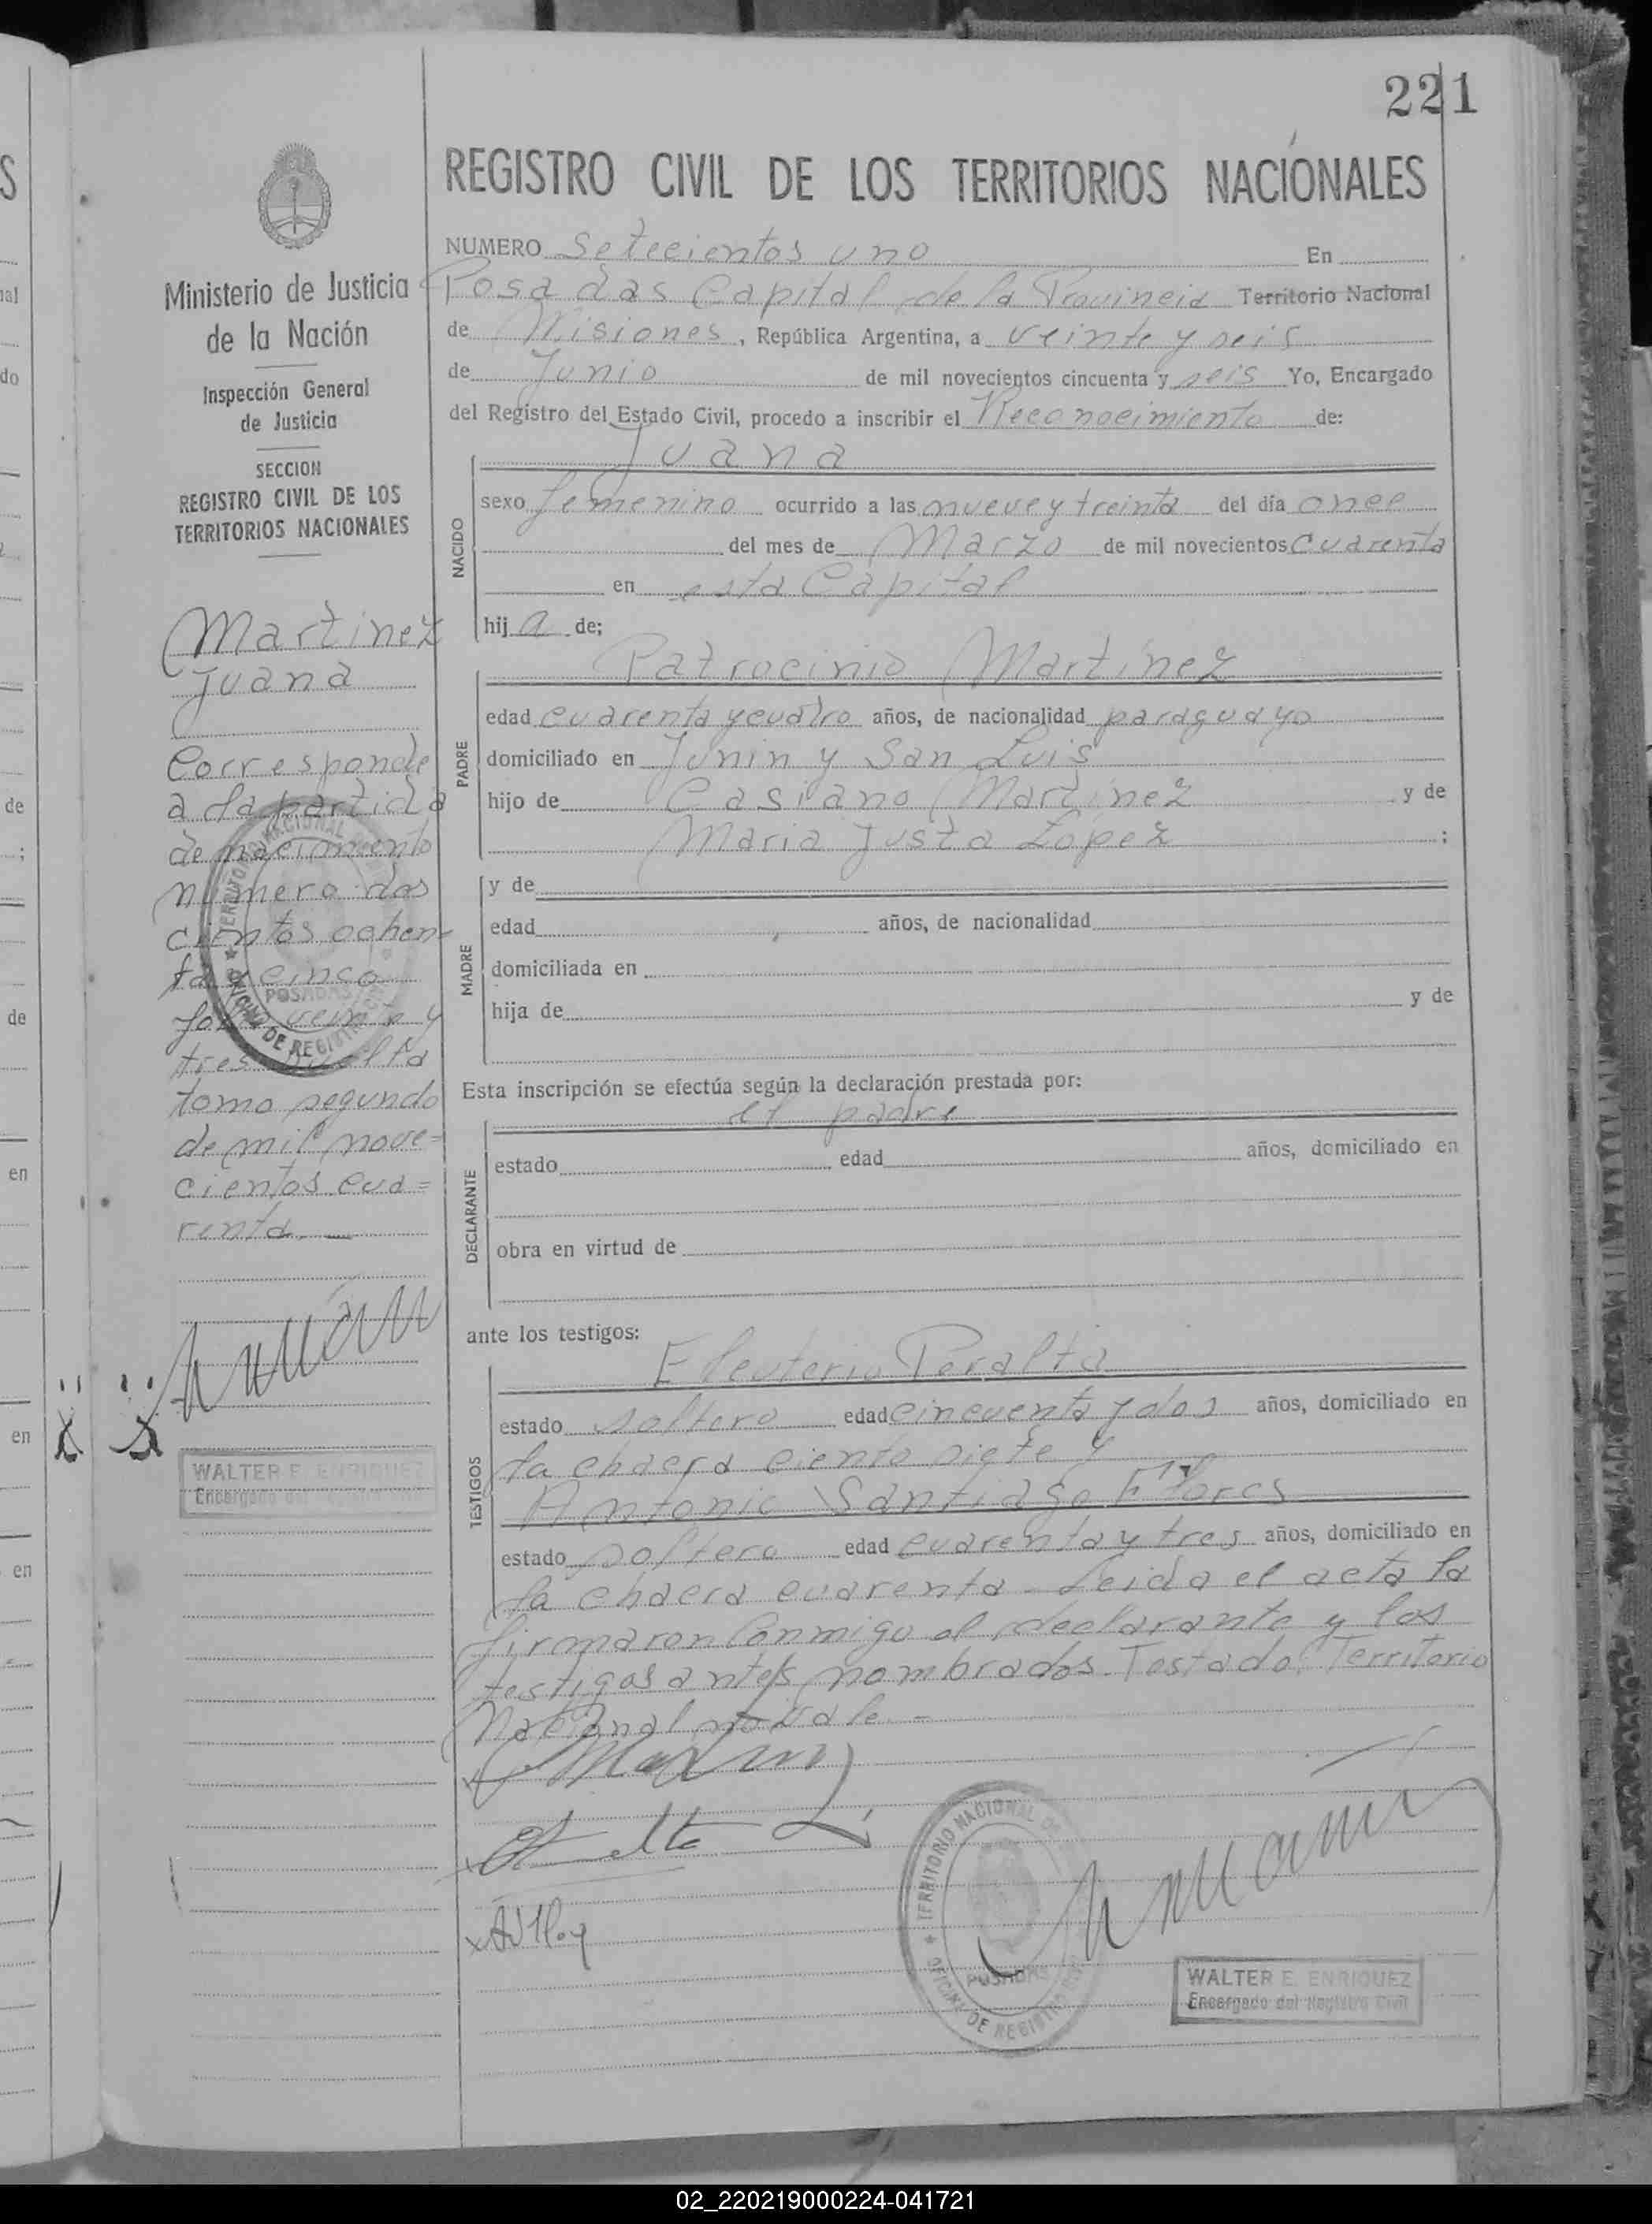 221
REGISTRO CIVIL DE LOS TERRITORIOS NACIONALES
NUMERO Setecientos uno En
Posadas Capital de la Provincia Territorio Nacional
de Misiones, República Argentina, a veinte y seis
de Junio de mil novecientos cincuenta y seis Yo, Encargado
del Registro del Estado Civil, procedo a inscribir el Reconocimiento de:
Juana
NACIDO
sexo femenino ocurrido a las nueve y treinta del día once
del mes de Marzo de mil novecientos cuarenta
en esta Capital
hija de;
Patrocinio Martinez
PADRE
edad cuarenta y cuatro años, de nacionalidad paraguayo
domiciliado en Junin y San Luis
hijo de Casiano Martinez y de
Maria Justa Lopez ;
MADRE
y de
edad años, de nacionalidad
domiciliada en
hija de y de
Esta inscripción se efectúa según la declaración prestada por:
el padre
DECLARANTE
estado edad años, domiciliado en
obra en virtud de
ante los testigos:
Eleuterio Peralta
TESTIGOS
estado soltero edad cincuenta y dos años, domiciliado en
la chacra ciento siete y
Antonio Santiago Flores
estado soltero edad cuarenta y tres años, domiciliado en
la chacra cuarenta. Leida el acta la
firmaron conmigo el declarante y los
testigos antes nombrados. Testado: Territorio
Nacional no vale. -
TERRITORIO NACIONAL DE
POSADAS
OFICINA DE REGISTRO
WALTER E. ENRIQUEZ
Encargado del Registro Civil
Ministerio de Justicia
de la Nación
Inspección General
de Justicia
SECCION
REGISTRO CIVIL DE LOS
TERRITORIOS NACIONALES
Martinez
Juana
Corresponde
a la partida
de nacimiento
numero dos
cientos ochen-
ta y cinco
folio veinte y
tres vuelta
tomo segundo
de mil nove=
cientos cua=
renta. —
TERRITORIO NACIONAL
POSADAS
OFICINA DE REGISTRO
WALTER E. ENRIQUEZ
Encargado del Registro Civil
02_220219000224-041721